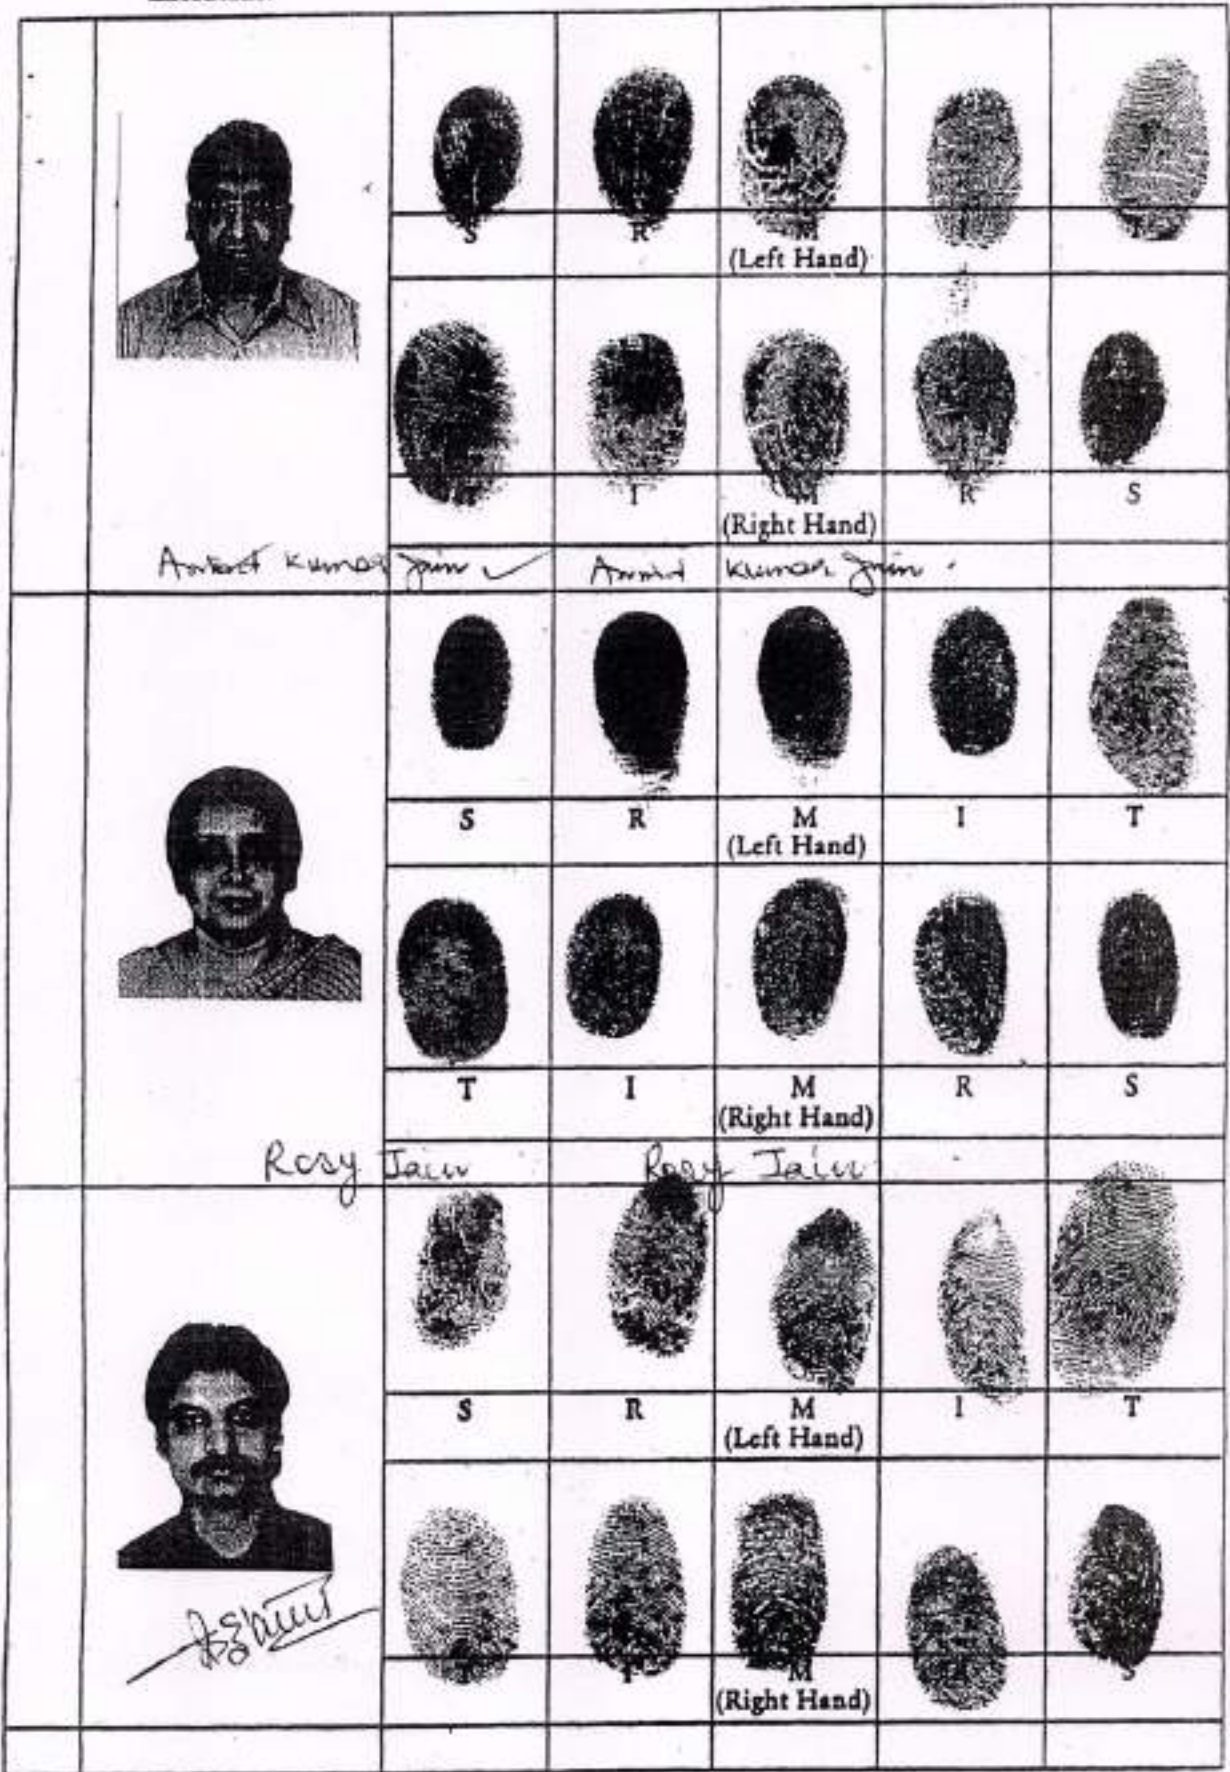 S R M I
(Left Hand)
I M R S
(Right Hand)
Kumar Jain Kumar Jain
S R M I T
(Left Hand)
T I M R S
(Right Hand)
Rosy Jain Rosy Jain
S R M I T
(Left Hand)
M S
(Right Hand)